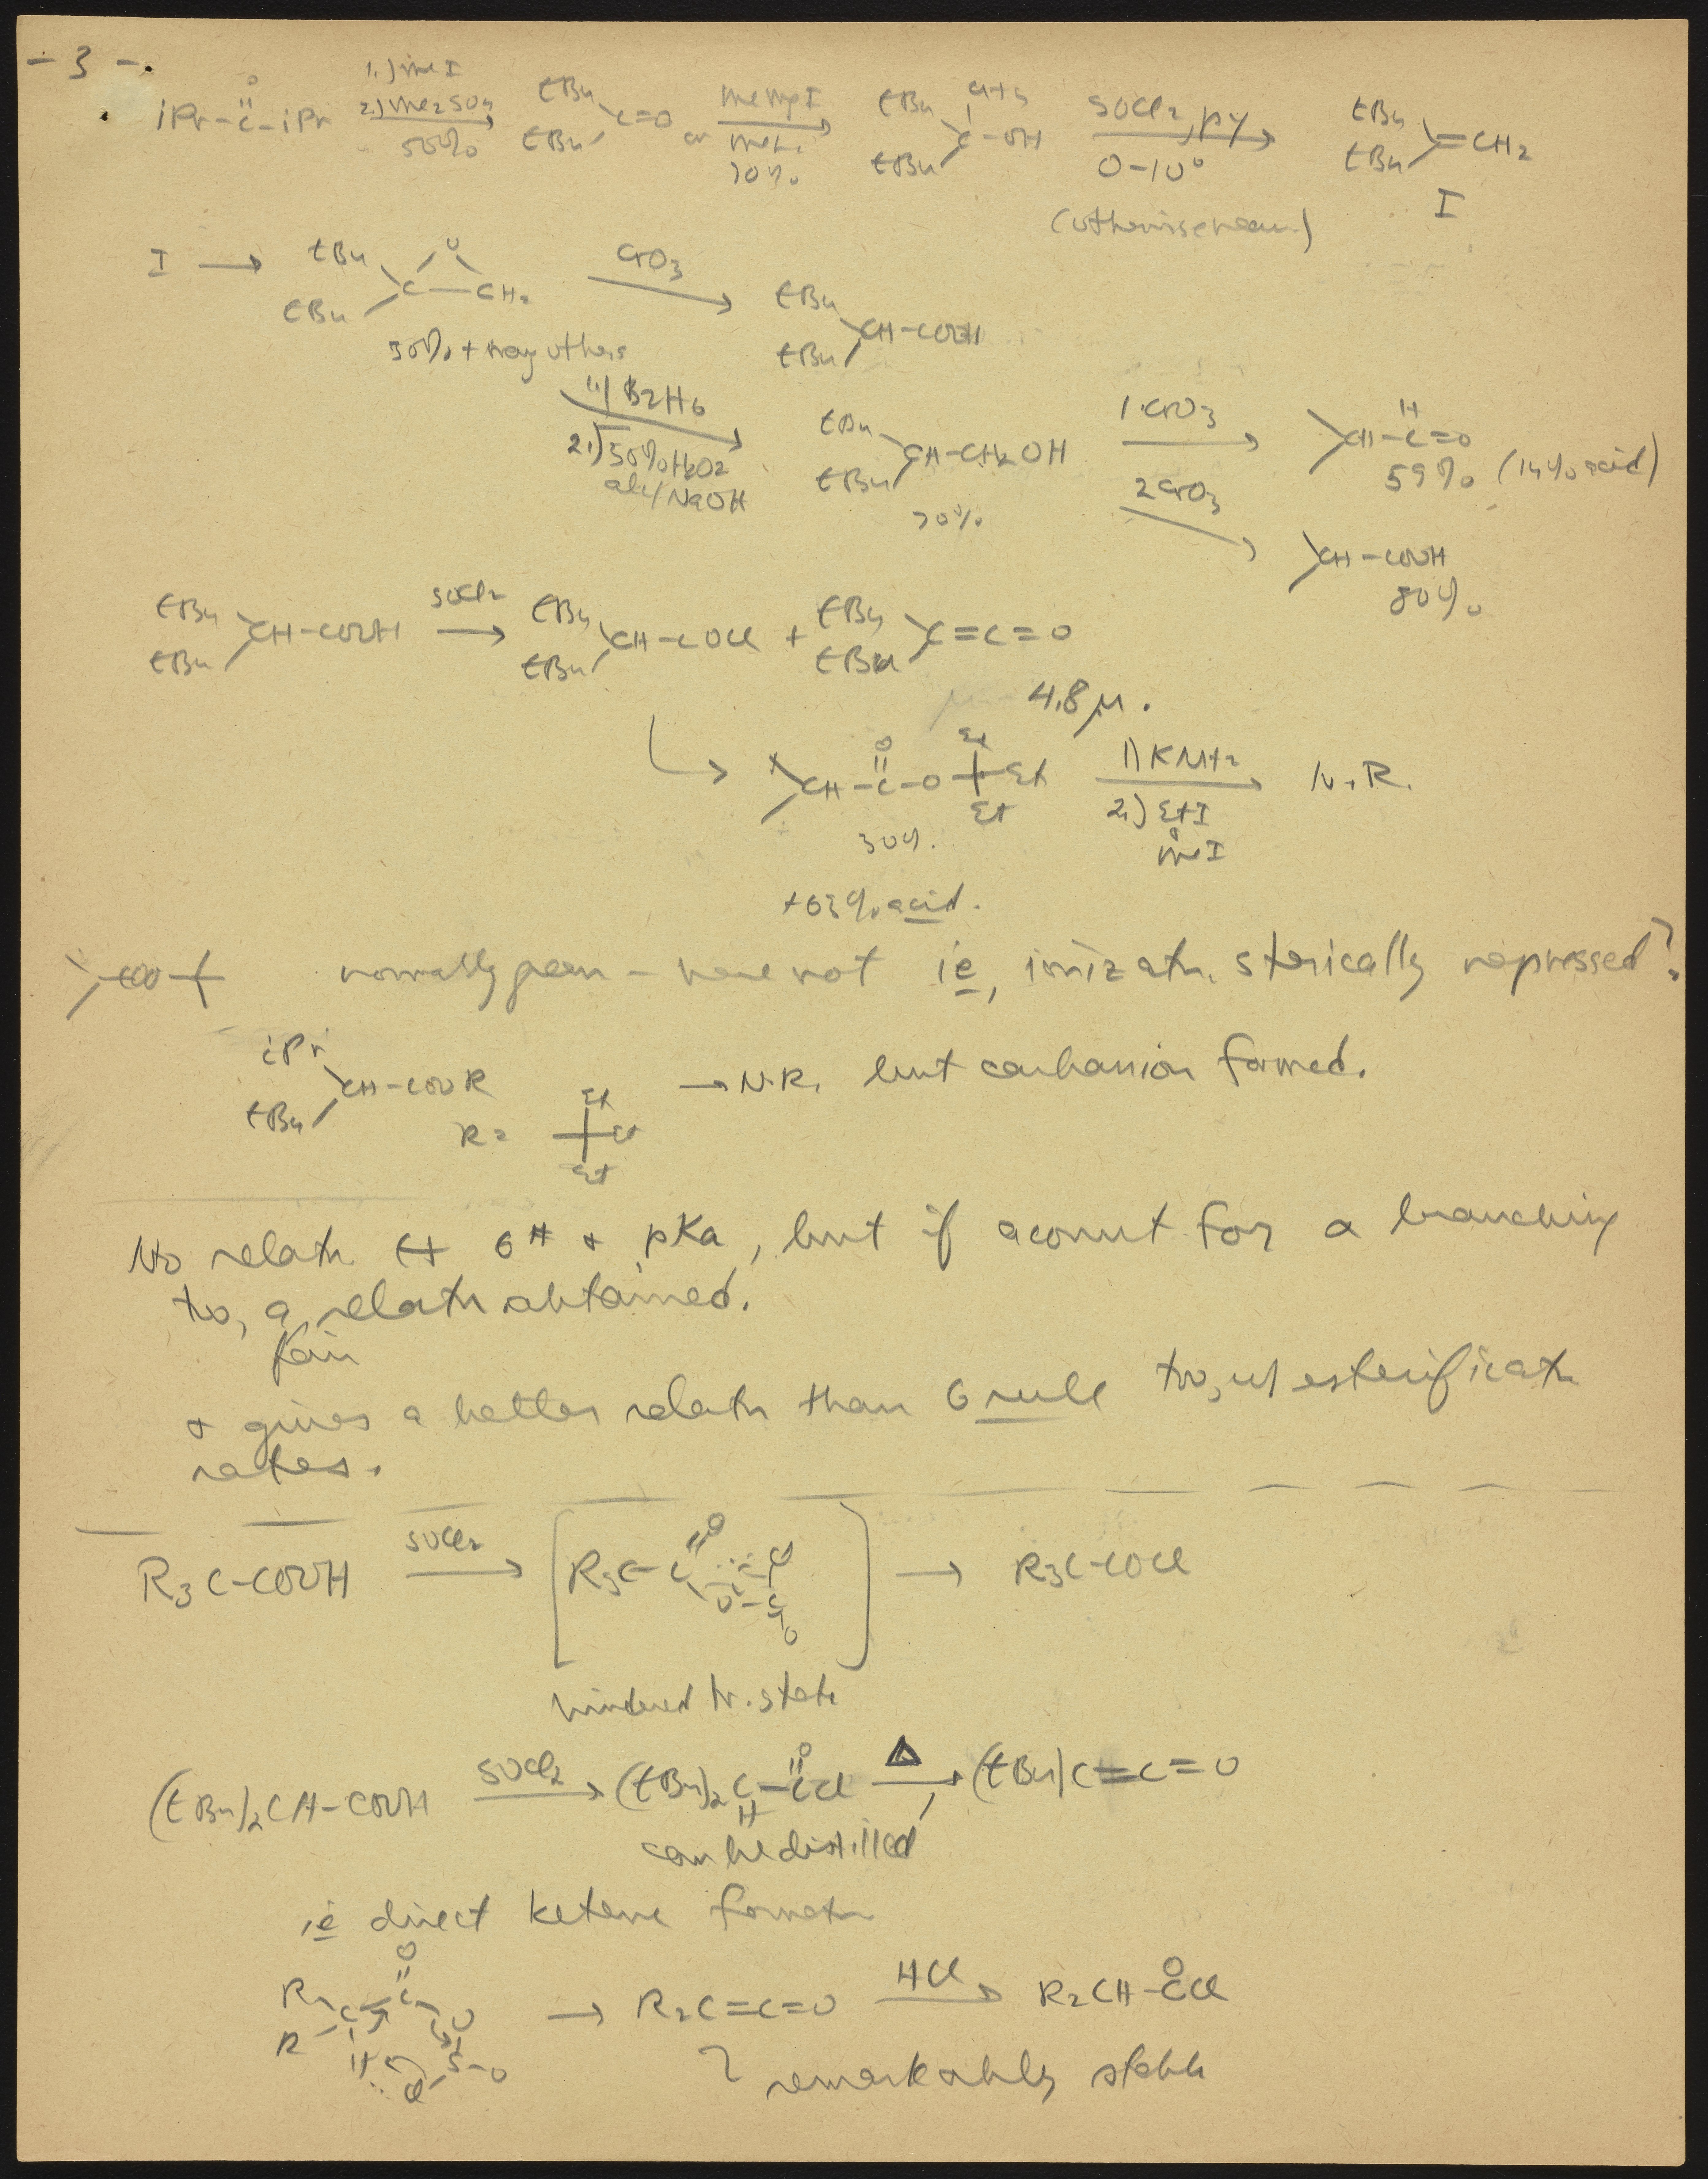 - 3 -
iPr-C-iPr 1.) MeI 2.) Me2SO4 50% → tBu tBu C=O MeMgI or MeLi 70% → tBu tBu C-OH CH3 SOCl2, py 0-10° → tBu tBu C=CH2
O
(otherwise rearr.) I
I → tBu tBu C-CH2 O CrO3 → tBu tBu CH-COOH
50% + many others
1.) B2H6 2.) 30% H2O2 alc/NaOH → tBu tBu CH-CH2OH 1 CrO3 → CH-C=O H
70% 59% (14% acid)
2 CrO3 → CH-COOH
80%
tBu tBu CH-COOH SOCl2 → tBu tBu CH-COCl + tBu tBu C=C=O
4.8 μ.
→ CH-C-O Et Et Et 1) KNH2 2.) EtI or MeI → N.R.
O
30%.
+ 63% acid.
COO normally rearr - here not ie, ionizatn. sterically repressed?
iPr tBu CH-COOR → N.R. but carbanion formed.
R = Et Et Et
No relatn. ↔ σ* & pKa, but if account for α branching
too, a relatn obtained.
fair
& gives a better relatn than 6 rule too, w/ esterificatn
rates.
R3C-COOH SOCl2 → [R3C-C O O-S Cl O] → R3C-COCl
hindered tr. state
(tBu)2CH-COOH SOCl2 → (tBu)2C-CCl H O Δ → (tBu)C=C=O
can be distilled
ie direct ketene formatn
R R C C O O H Cl S-O → R2C=C=O HCl → R2CH-CCl O
remarkably stable